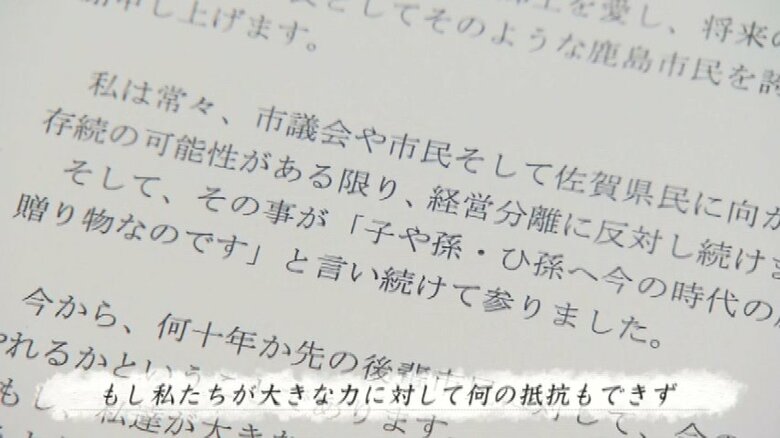 を愛し、将来の
としてそのような鹿島市民を誇
申し上げます。
私は常々、市議会や市民そして佐賀県民に向か
存続の可能性がある限り、経営分離に反対し続けま
そして、その事が「子や孫・ひ孫へ今の時代の
贈り物なのです」と言い続けて参りました。
今から、何十年か先の後輩
れるかという
もし、私達が大きな
もし私たちが大きな力に対して何の抵抗もできず